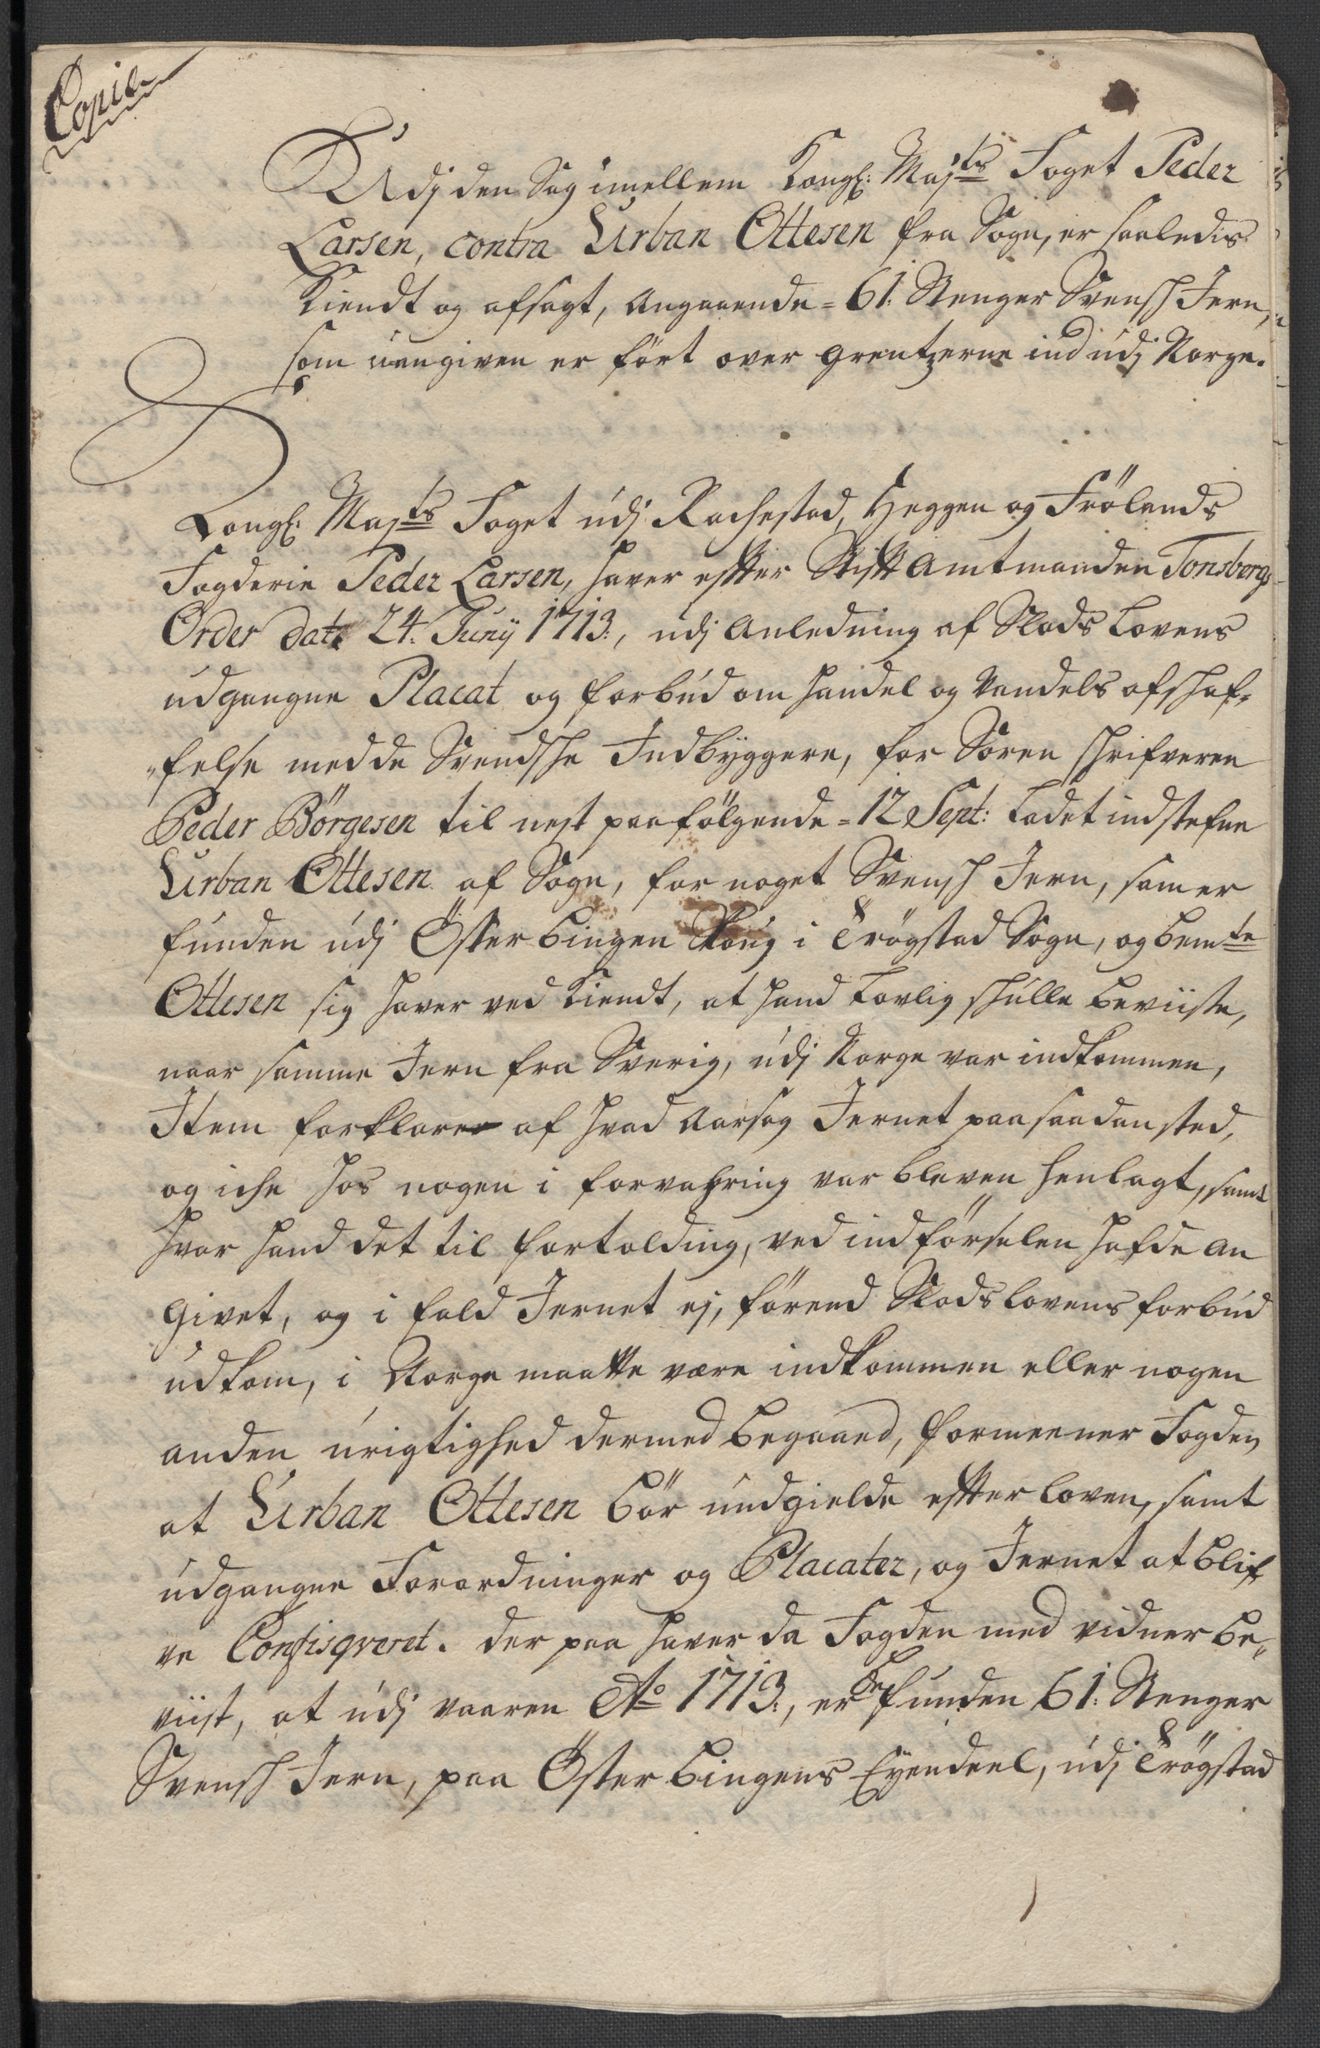 Copie
Udj den Sag imellem Kongl: Maj:ts Foget Peder
Larsen, contra Urban Ottesen fra Sogn, er saaledis
Kiendt og afsagt, Angaaende = 61: Stenger Svensch Jern,
som uangiven er ført over grentzerne ind udj Norge.
Kongl: Maj:ts Foget udj Rachestad, Heggen og Frølands
Fogderie Peder Larsen, haver efter Stift Amtmanden Tonsbergs
Order dat: 24. Junij 1713:, udj Anledning af Slods Lovens
udgangne Placat og forbud om handel og Vandels afschaf-
felse med de Svendsche Indbyggere, for Soren schrifveren
Peder Börgesen til nest paafølgende = 12 Sept: Ladet indstefne
Urban Ottesen af Sogn, for noget Svensch Jern, som er
funden udj Öster bingen Skoug i Trögstad Sogn, og bem:te
Ottesen sig haver ved Kiendt, at hand Lovlig schulle beviiste,
naar samme Jern fra Sverig, udj Norge var indkommen,
Item forklarer af hvad Aarsag Jernet paa saadan sted,
og iche hos nogen i forvahring var bleven henlagt, samt
hvor hand det til fortolding, ved indförselen hafde An
givet, og i fald Jernet ej, förend Slods Lovens forbud
udkom, i Norge maatte være indkommen eller nogen
anden urigtighed dermed begaaed, formeener Fogden
at Urban Ottesen bör undgielde efter loven, samt
udgangne Forordninger og Placater, og Jernet at blif
ve Confisqveret. der paa haver da Fogden med vidner be-
viist, at udj vaaren A:o 1713:, er befunden 61: Stenger
Svensch Jern, paa Öster bingens Eyendeel, udj Trögstad